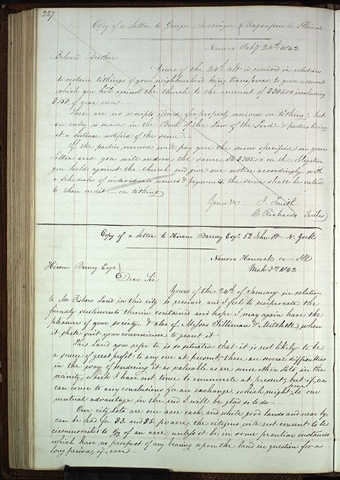 227
Copy of a Letter to
Nauvoo Feby 24th 1842
Beloved Brother
Yours of the 24th ult. is received in which as
to certain tithings of your neighborhood being transferred to your account
which you hold against the church to the amount of including
of your own.
There are no receipts issued for property received on tithing; but
an entry is made in the Book of the Law of the Lord & parties living
at a distance notified of the same.
If the parties named will pay you the sums specified in your
letter and you will endorse the same on the obligation
you hold against the church and give me notice accordingly with
a schedule of individual names & payments the same shall be entered
to their credit on tithing
Yours &c J. Smith
W. Richards Scribe
Copy of a Letter to Hiram Barney Esqr. 52 John St N. York
Nauvoo Hancock co— Ills
March 3rd 1842
Hiram Barney Esqr
Dear Sir
Yours of the 24th of January in relation
to Land in this city is received and I feel to reciprocate the
friendly sentiments therein contained and hope I may again have the
pleasure of your society, & also of Messrs Tillinson & Mitchell, when
it shall suit your convenience to grant it.
This Land you refer to is so situated that it is not likely to be
a source of great profit to any one at present. there are several difficulties
in the way of rendering it as valuable as are some other lots, in the
vicinity, which I have not time to enumerate at present, but if we
can come to any conclusions for an exchange, which might be to our
mutual advantage in the end I will be glad so to do.
Our city lots are one acre each, and while good lands and near by
can be had for $3. and $5. pr acre the citizens will not consent to be
circumscribed to of an acre. unless it be in some peculiar instances
which have no prospect of any bearing upon the land in question for a
long period, if ever.